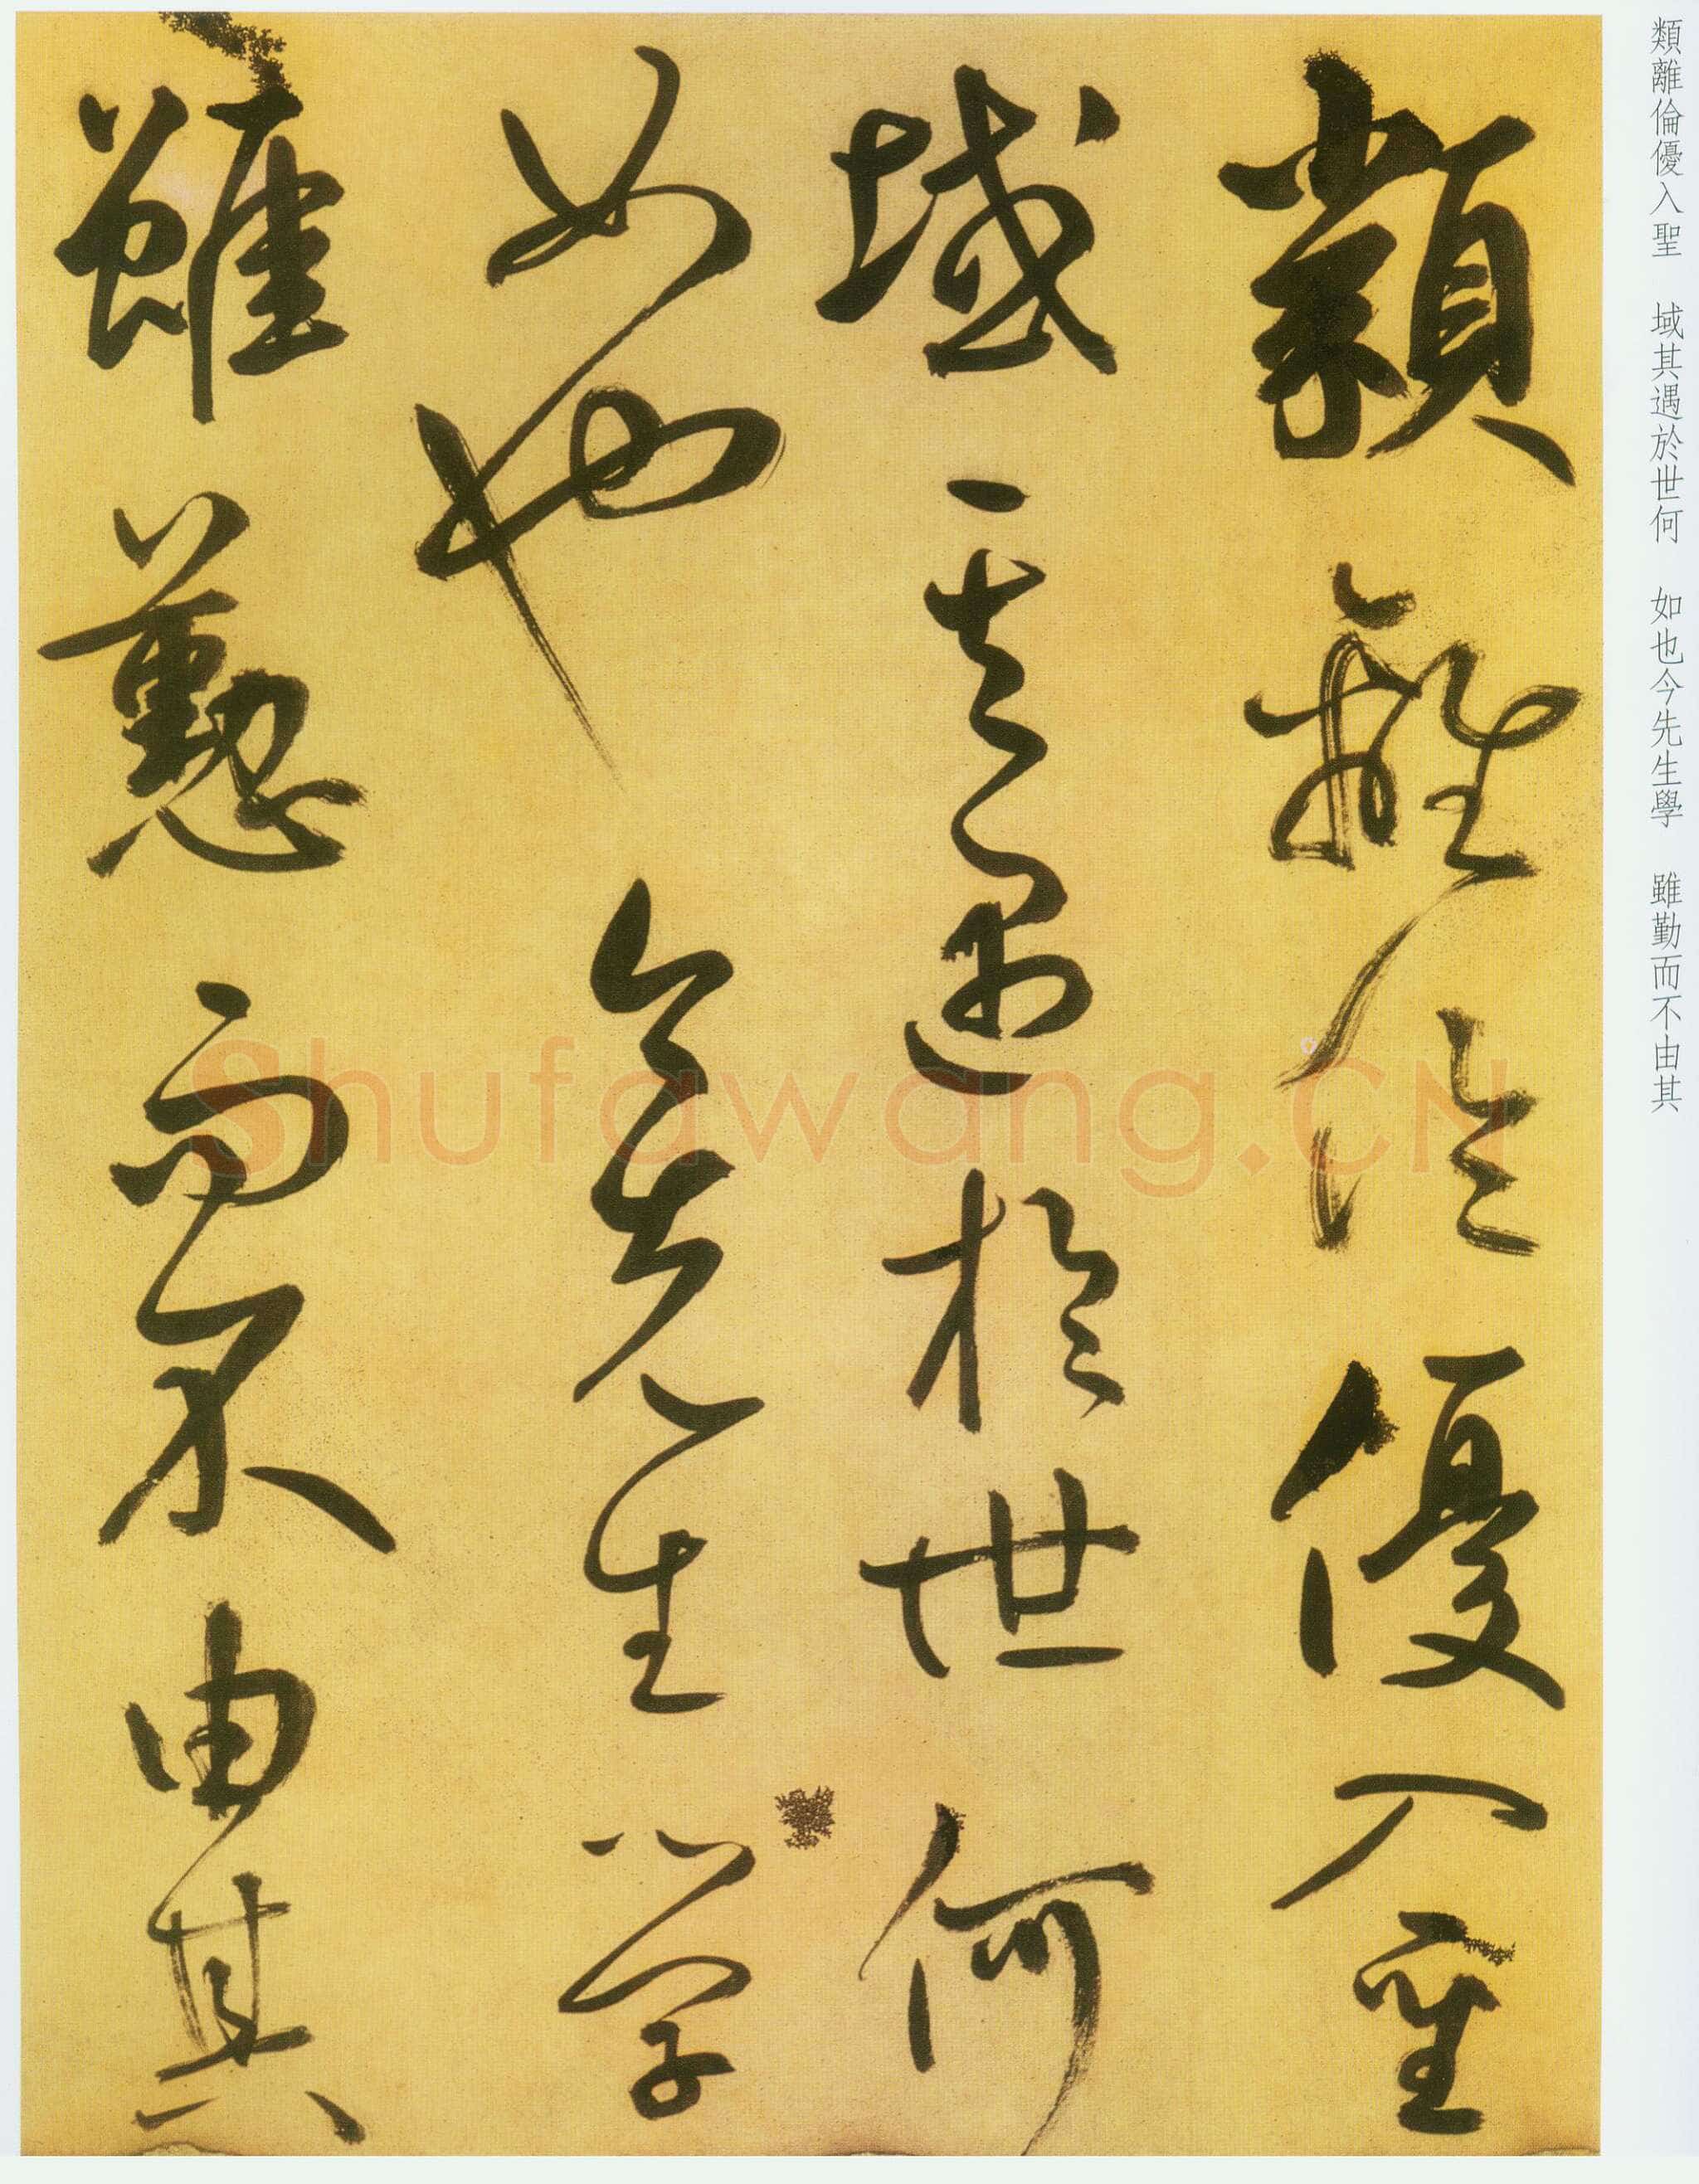 類離倫優入聖
域其遇於世何
如也今先生學
雖勤而不由其
類離倫優入聖　域其遇於世何　如也今先生學　雖勤而不由其
Shufawang.CN